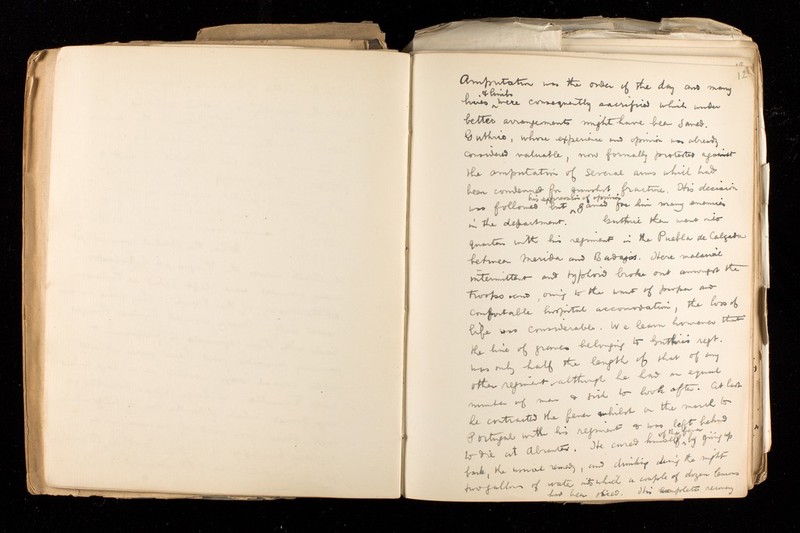 Amputation was the order of the day and many
lives & limbs were consequently sacrificed which under
better arrangements might have been saved.
Guthrie, whose experience and opinion was already
considered valuable, now formally protested against
the amputation of several arms which had
been condemned for gunshot fracture. His decision
was followed but his expression of opinion gained for him many enemies
in the department. Guthrie then went into
quarters with his regiment in the Puebla de Calzada
between Merida and Badajos. Here malarial
intermittent and typhoid broke out amongst the
troops and, owing to the want of proper and
comfortable hospital accomodation, the loss of
life was considerable. We learn however that
the line of graves belonging to Guthrie's regt.
was only half the length of that of any
other regiment although he had an equal
number of men & sick to look after. At last
he contracted the fever whilst on the march to
Portugal with his regiment & was left behind
to die at Abrantes. He cured himself of the fever by giving up
bark, the usual remedy, and drinking during the night
two gallons of water into which a couple of dozen lemons
had been sliced. His complete recovery